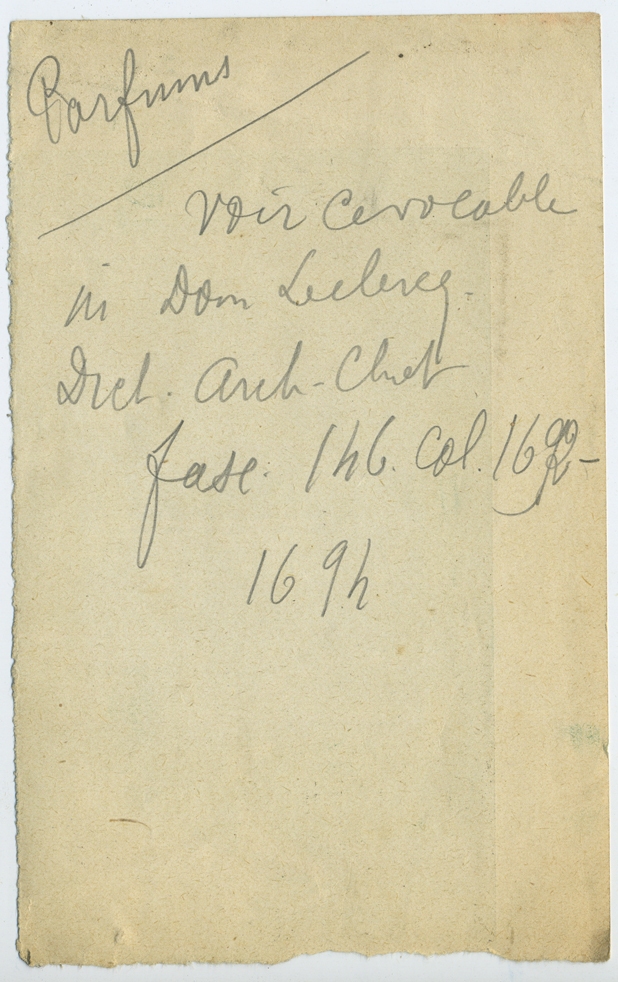 Parfums
voir ce vocable
in Dom Leclercq.
Dict. Arch-Chret
fasc. 146. Col. 1692-
1694